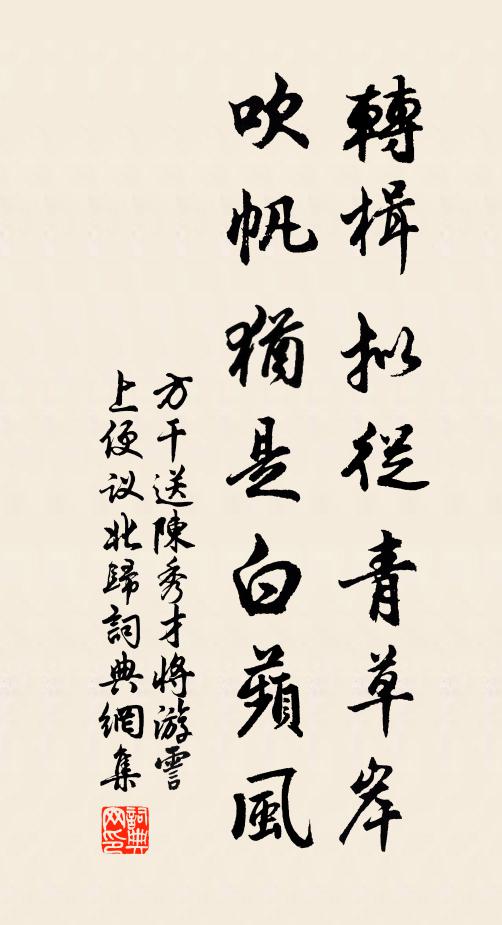 轉楫拟從青草岸
吹帆猶是白蘋風
方干送陳秀才將游霅
上便议北歸詞典網集
詞典网印